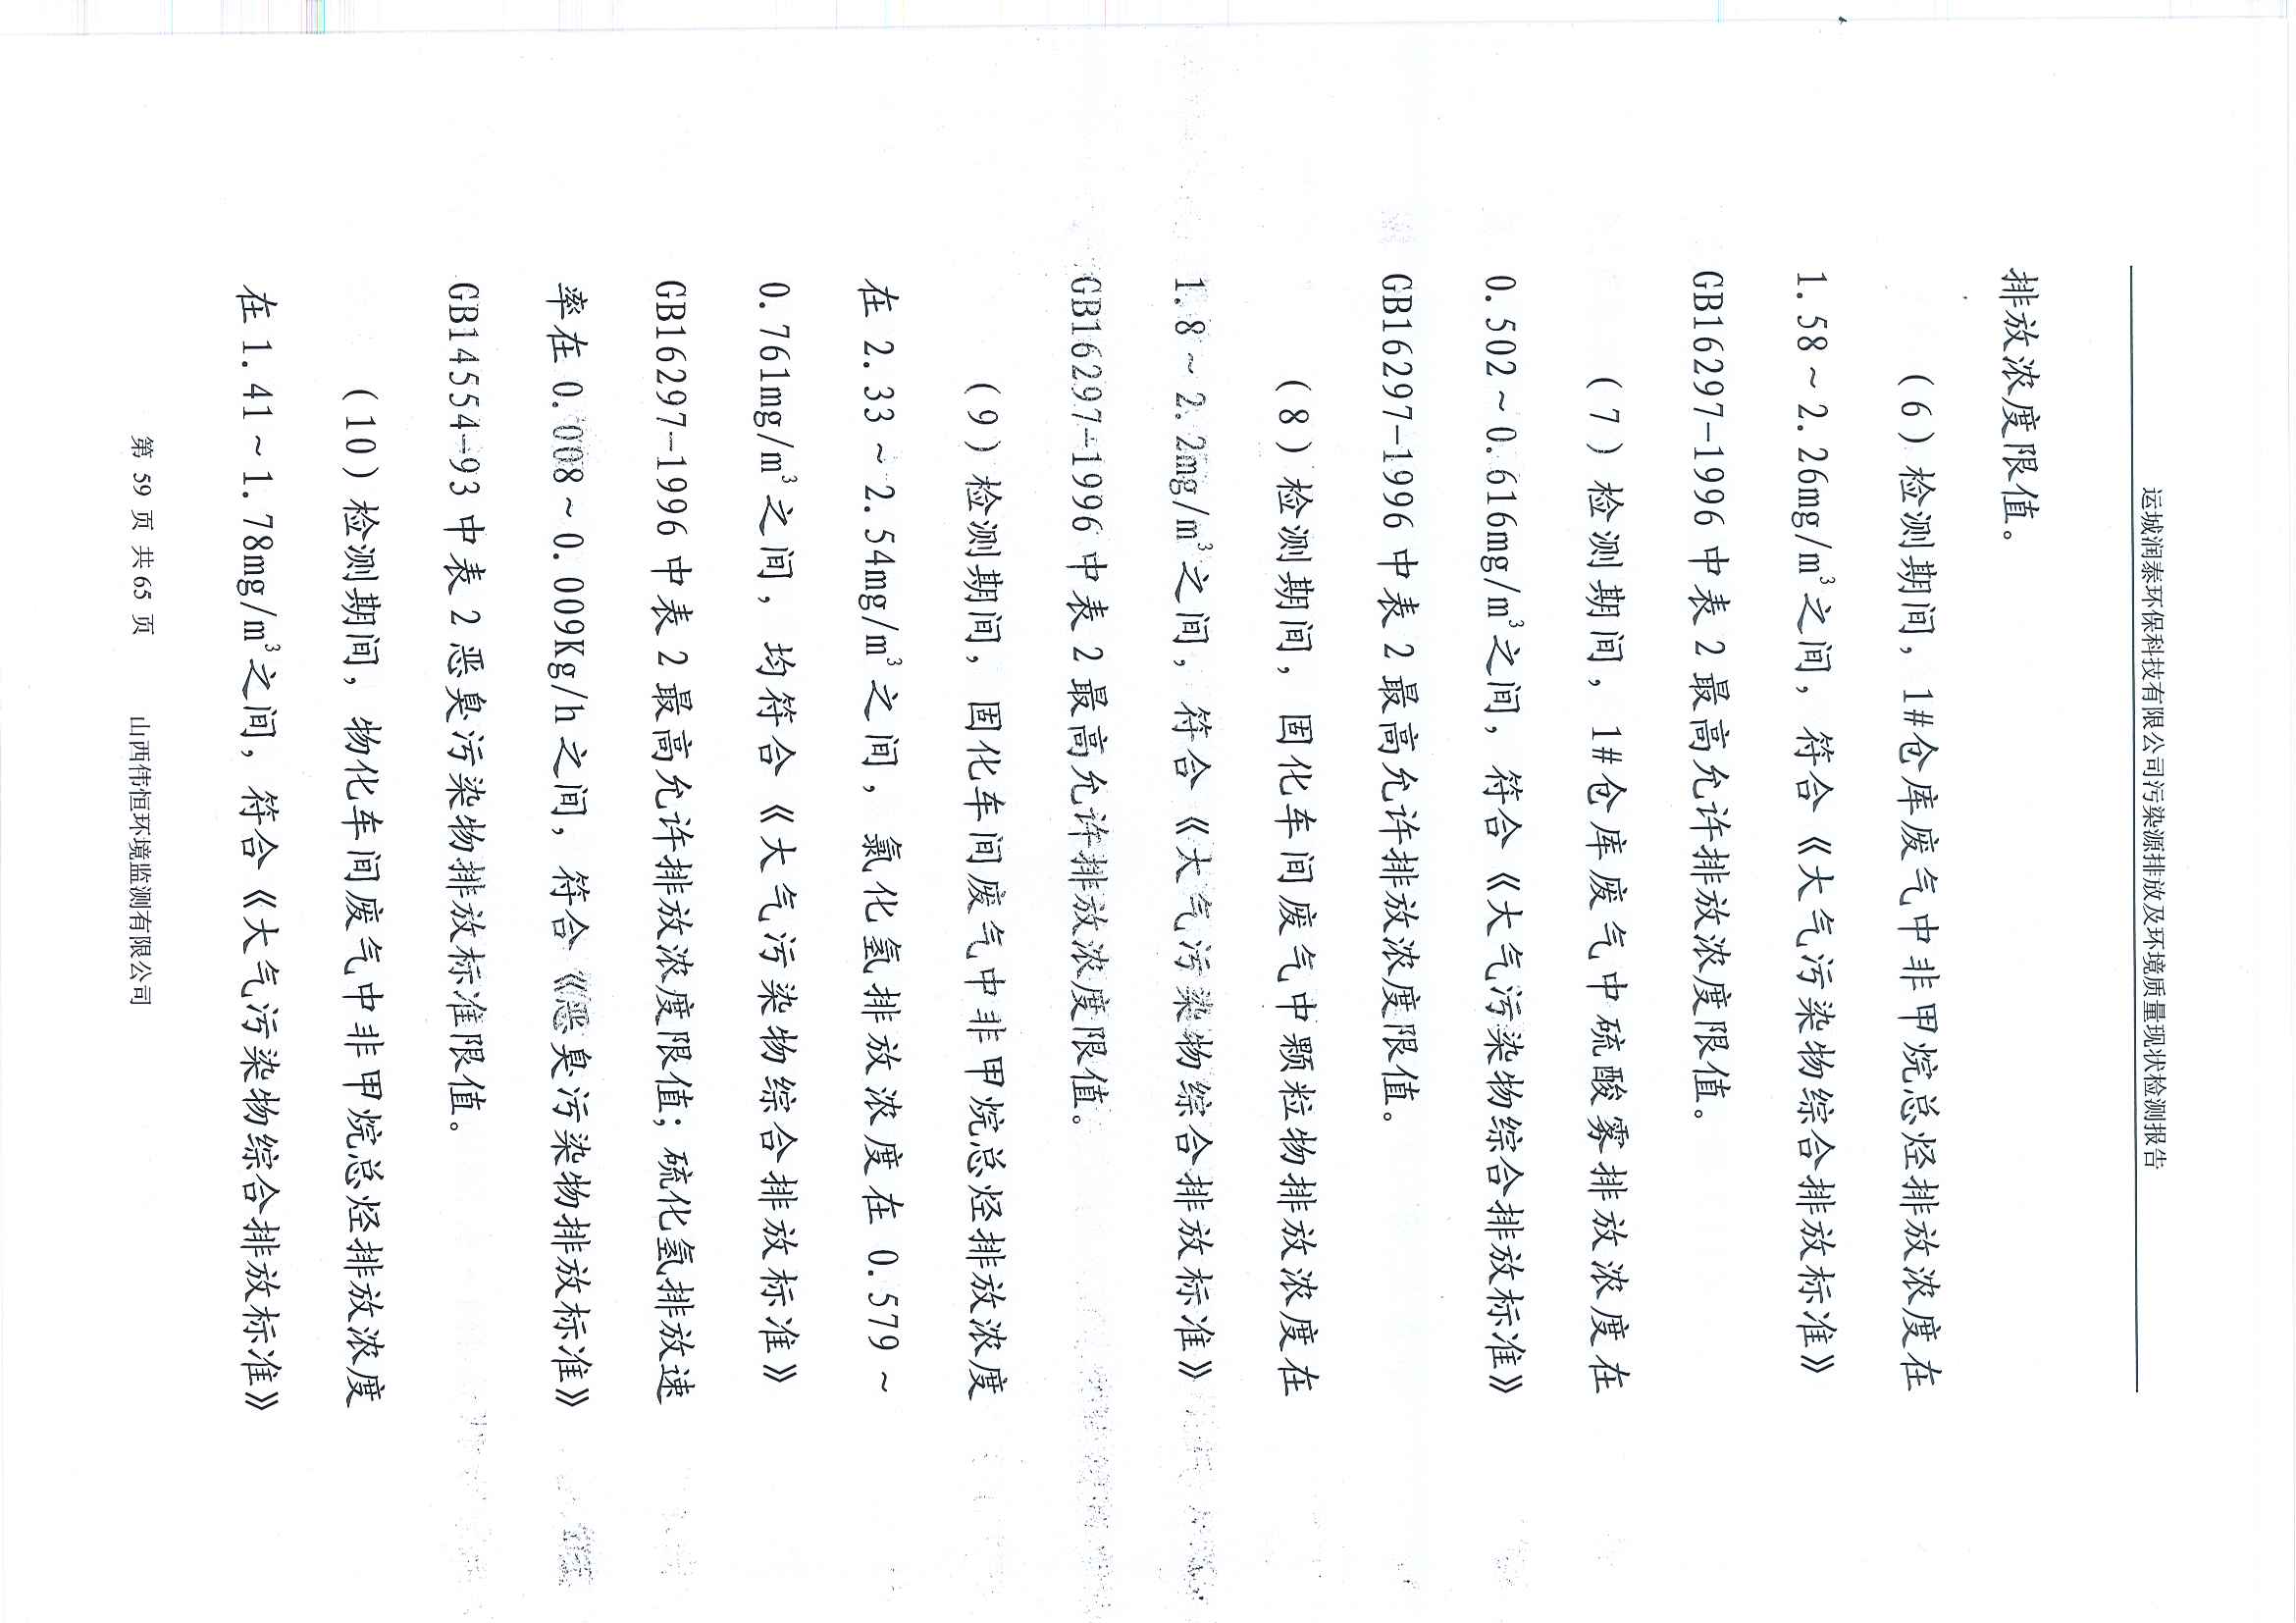 运城润泰环保科技有限公司污染源排放及环境质量现状检测报告
排放浓度限值。
(6)检测期间，1#仓库废气中非甲烷总烃排放浓度在
1.58~2.26mg/m³之间，符合《大气污染物综合排放标准》
GB16297-1996 中表 2 最高允许排放浓度限值。
(7)检测期间，1#仓库废气中硫酸雾排放浓度在
0.502~0.616mg/m³之间，符合《大气污染物综合排放标准》
GB16297-1996 中表 2 最高允许排放浓度限值。
(8)检测期间，固化车间废气中颗粒物排放浓度在
1.8~2.2mg/m³之间，符合《大气污染物综合排放标准》
GB16297-1996 中表 2 最高允许排放浓度限值。
(9)检测期间，固化车间废气中非甲烷总烃排放浓度
在 2.33~2.54mg/m³之间，氯化氢排放浓度在 0.579~
0.761mg/m³之间，均符合《大气污染物综合排放标准》
GB16297-1996 中表 2 最高允许排放浓度限值；硫化氢排放速
率在 0.008~0.009Kg/h 之间，符合《恶臭污染物排放标准》
GB14554-93 中表 2 恶臭污染物排放标准限值。
(10)检测期间，物化车间废气中非甲烷总烃排放浓度
在 1.41~1.78mg/m³之间，符合《大气污染物综合排放标准》
第 59 页 共 65 页 山西伟恒环境监测有限公司